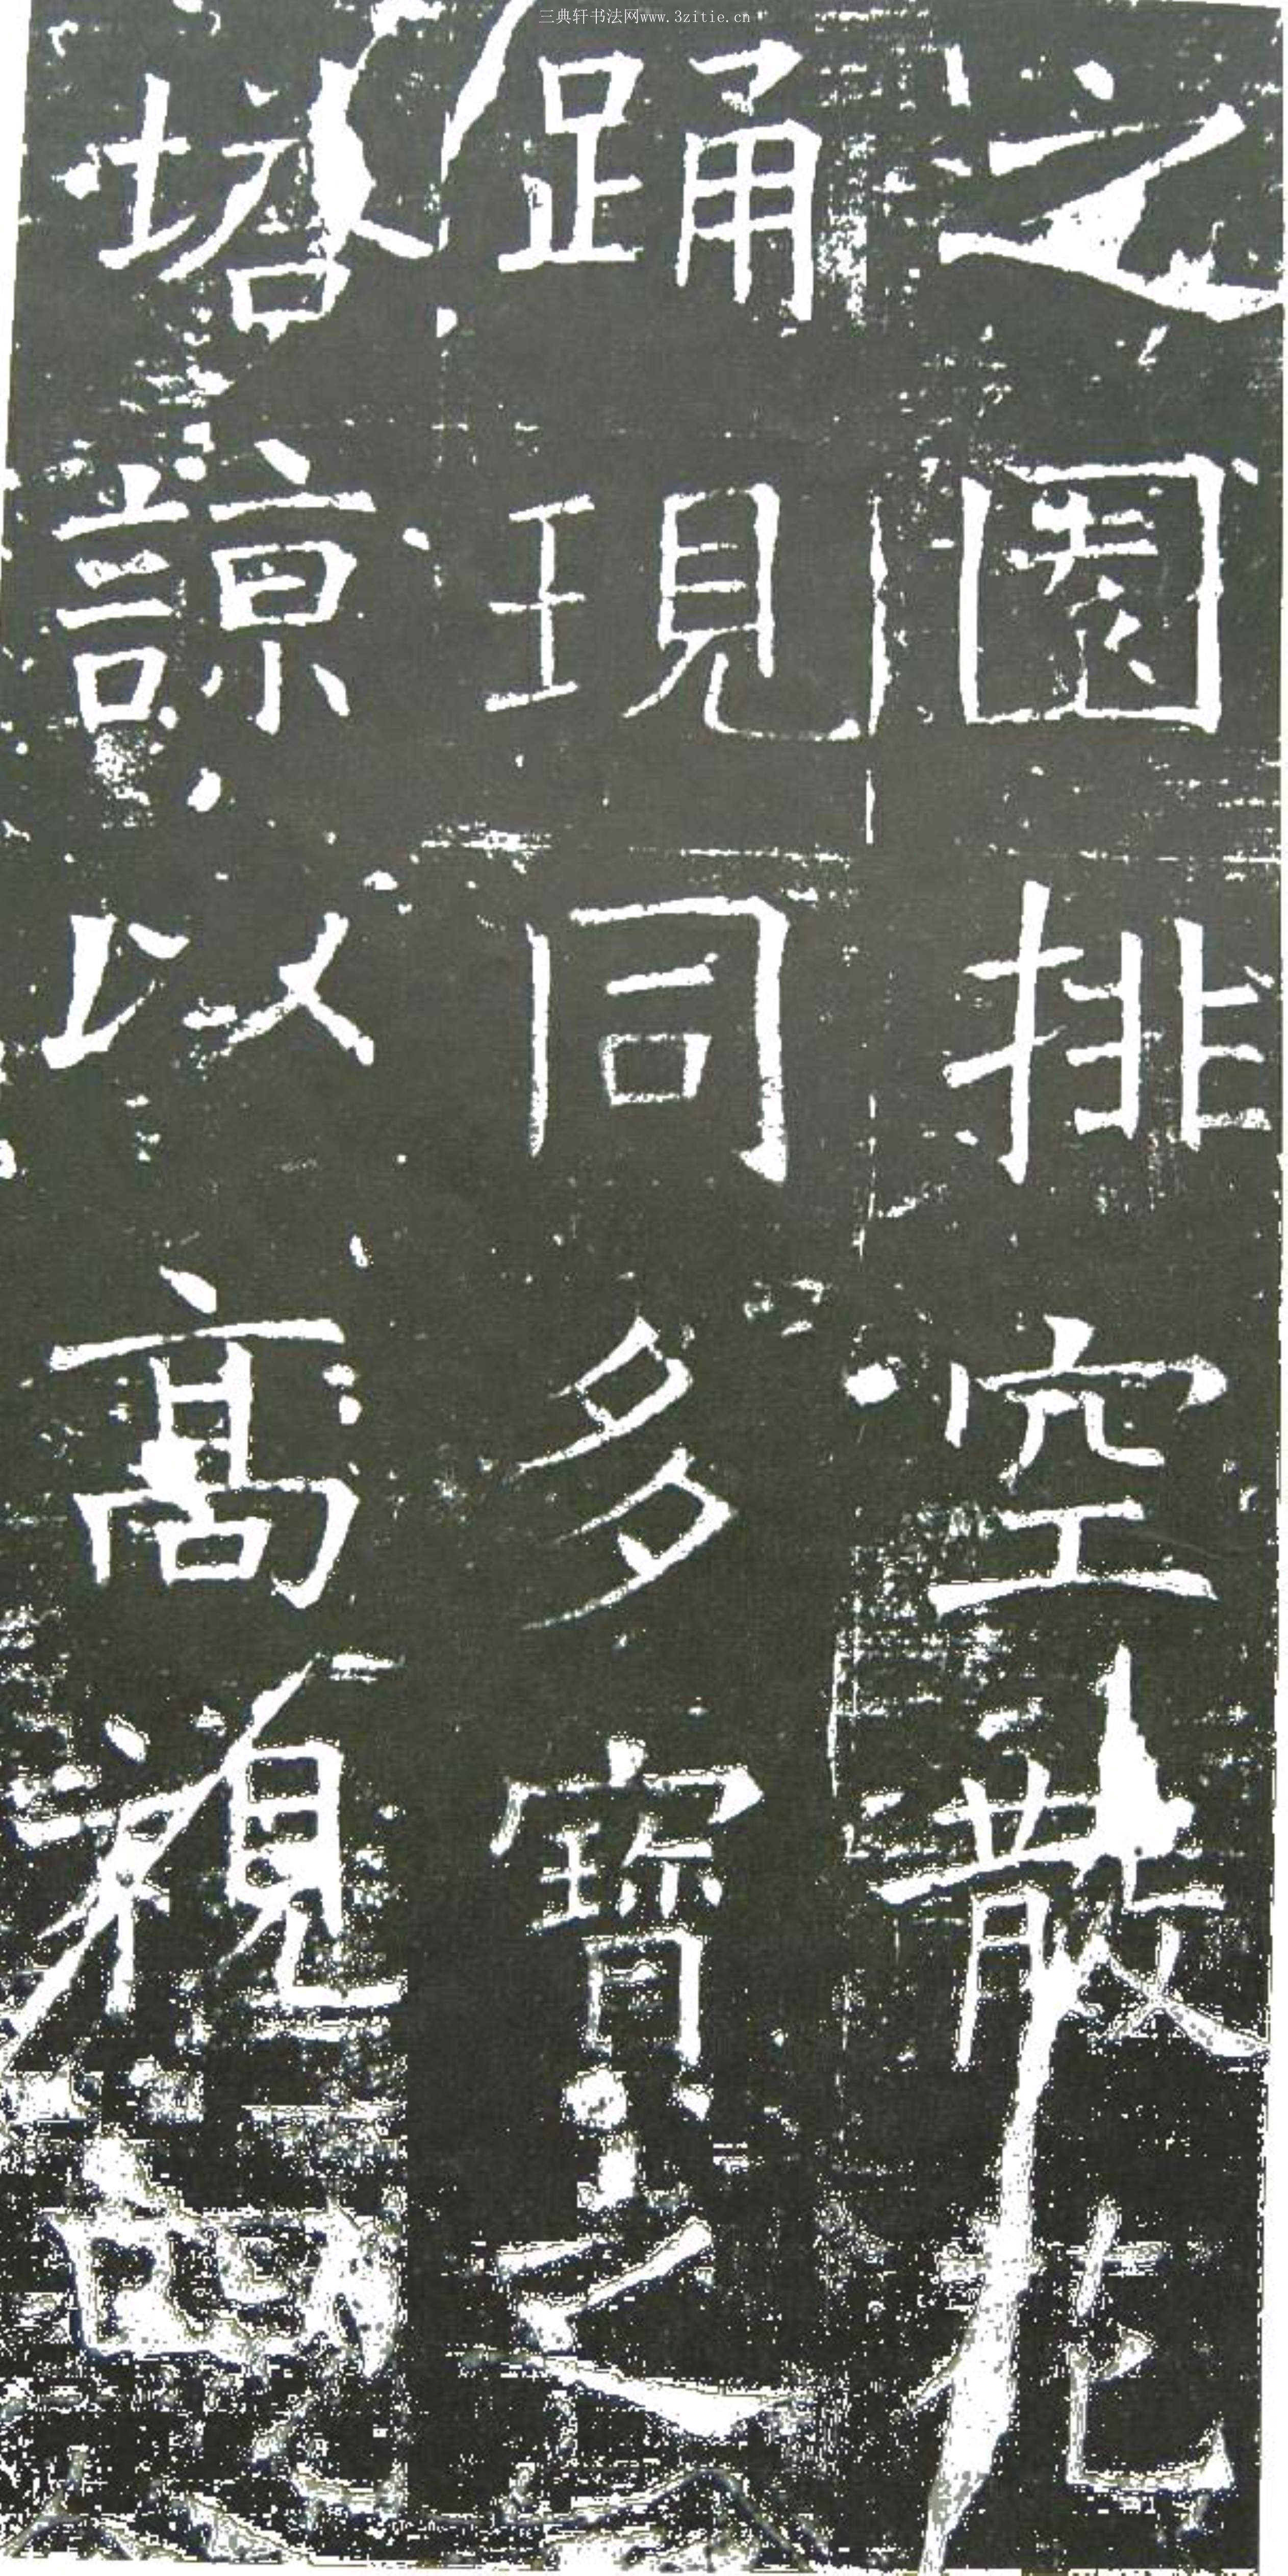 三典轩书法网www.3zitie.cn
之園排空散花
踊現同多寶之
塔諒以高視四